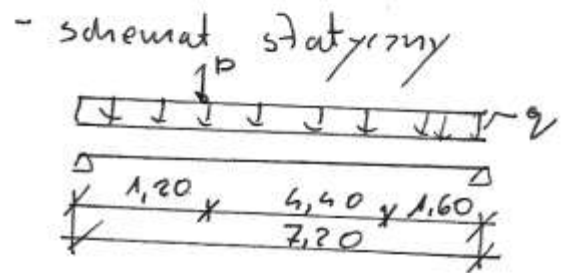 - schemat statyczny
P
q
1,20 4,40 1,60
7,20